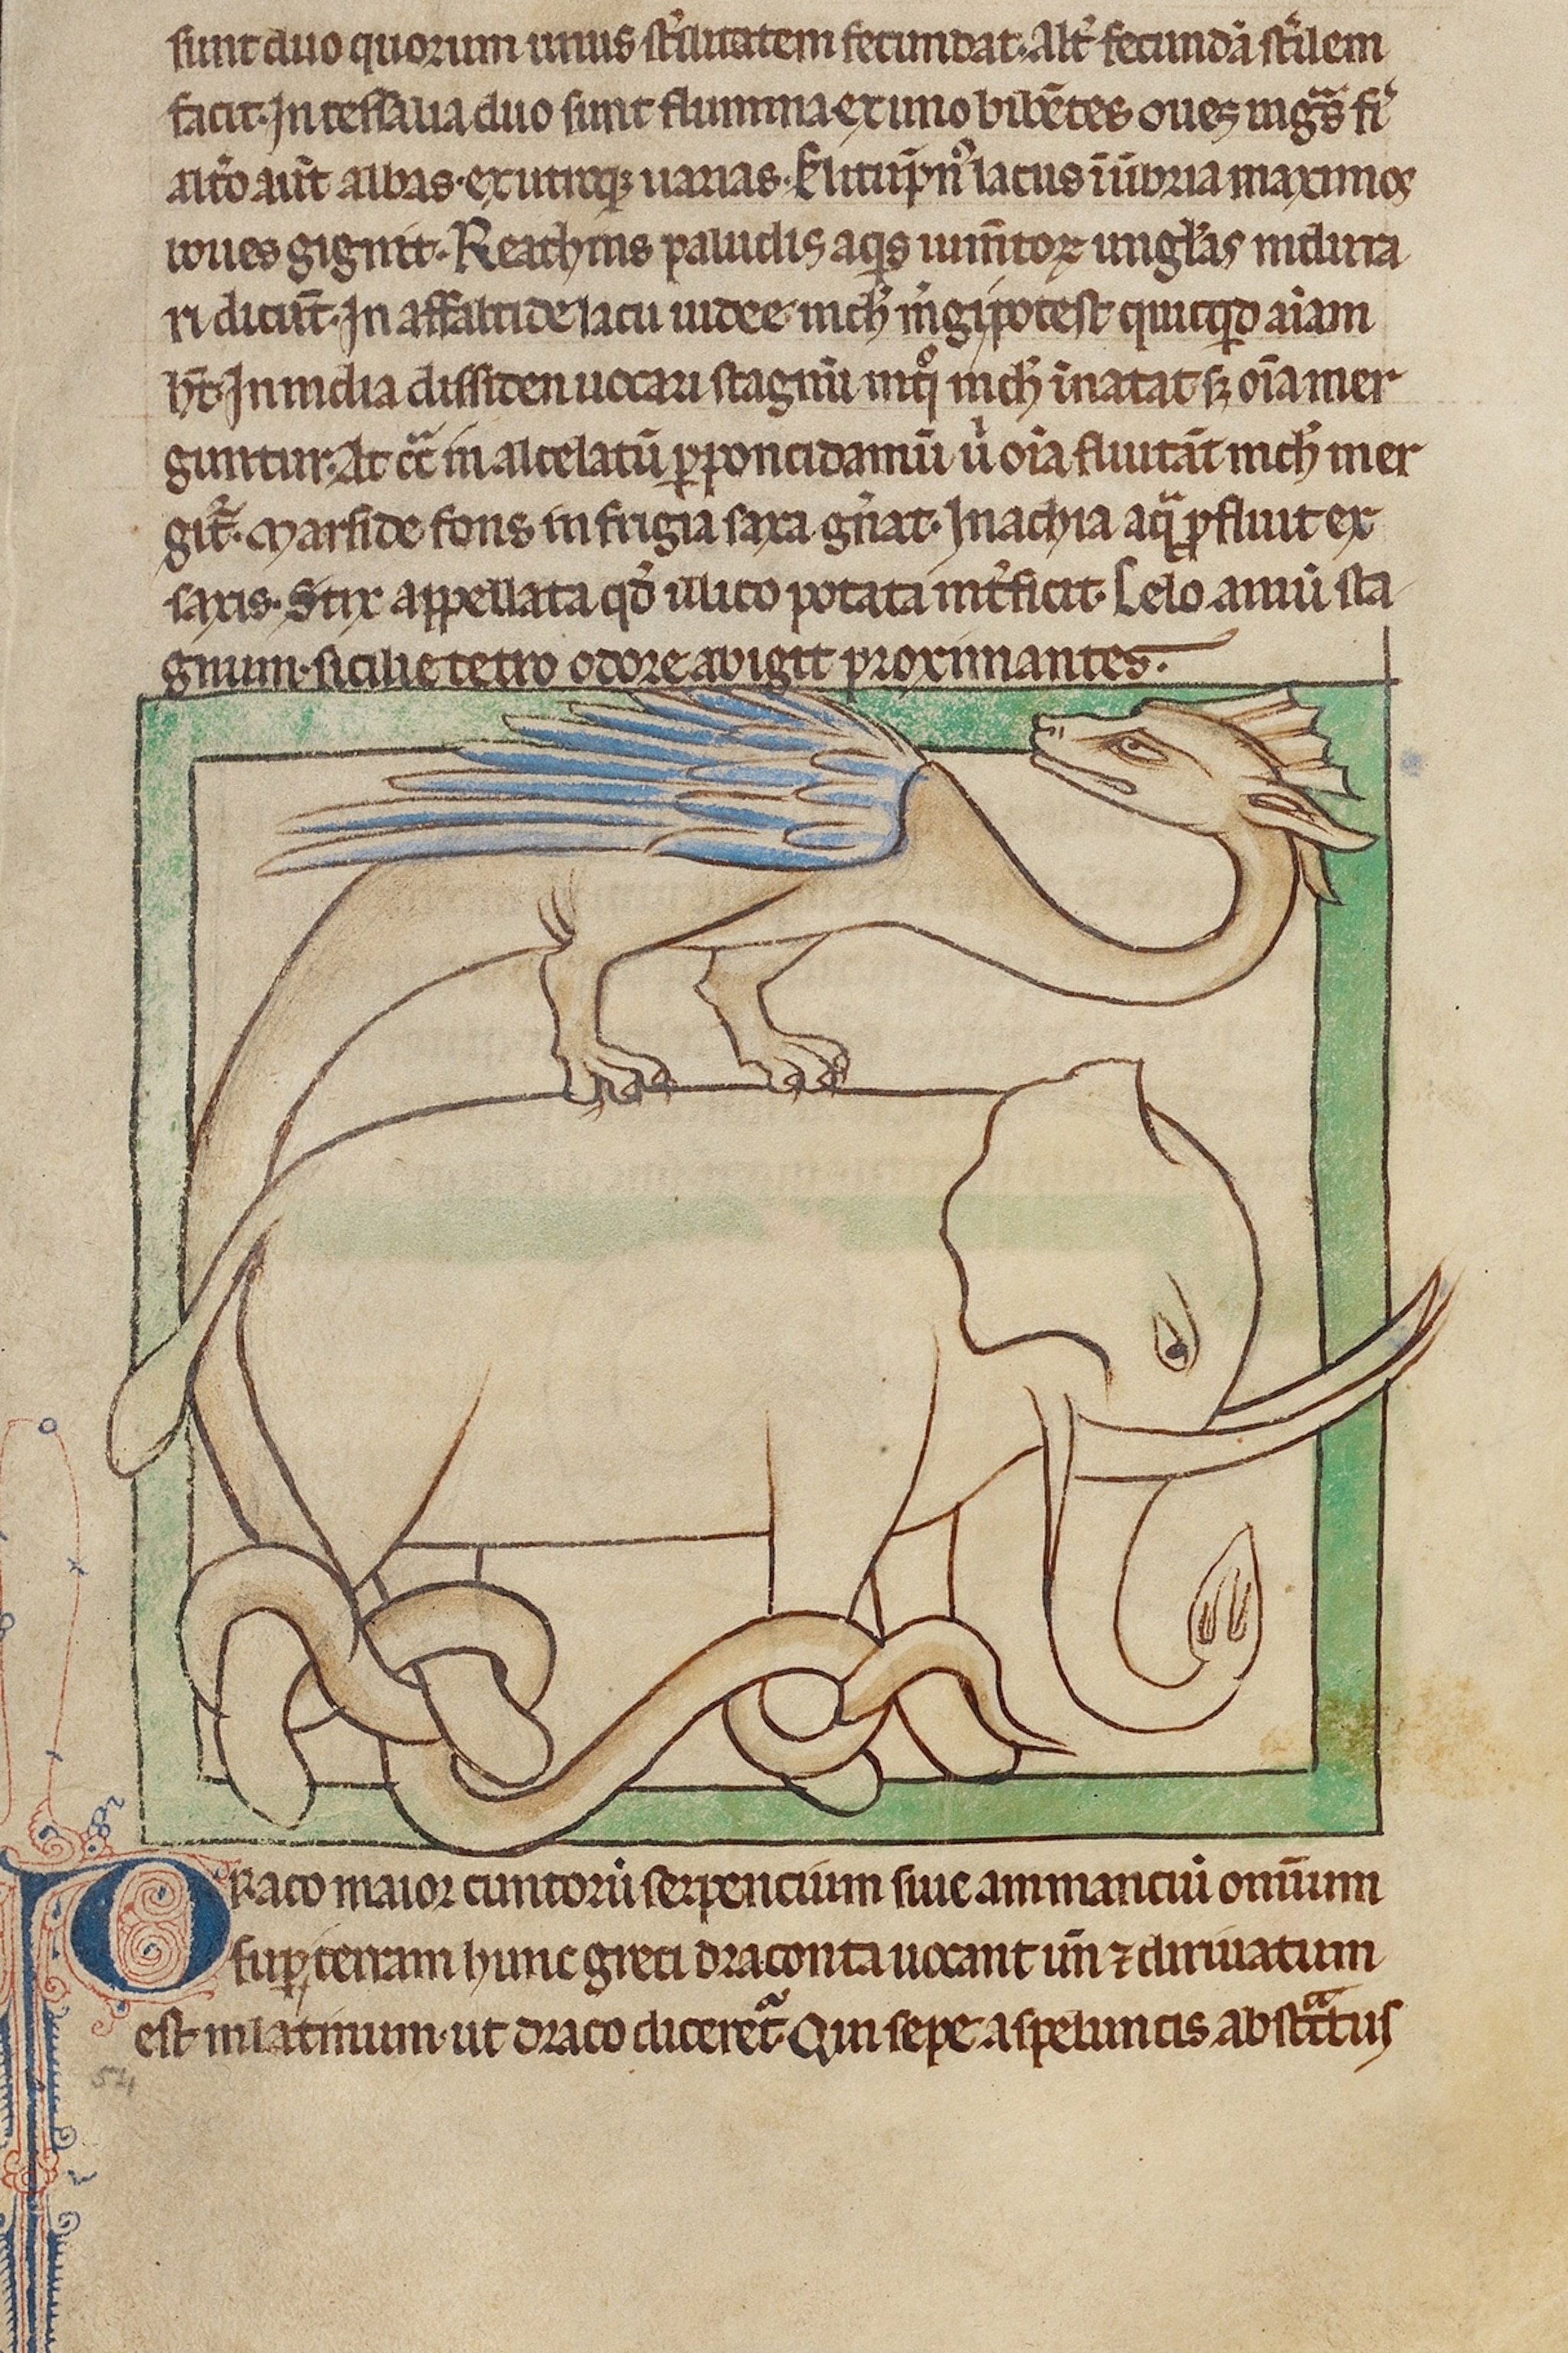 sunt duo quorum unus st̉ilitatem fecundat. Alt̉ fecundā st̉ilem
facit. In tessalia duo sunt flumina ex uno bibētes oues nigs̄ fi
alt̉o aūt albas. ex utroqꝫ uarias. Clitūpn̉ lacus ī ūbria maximos
boues gignit. Reatinis paludis aqs iumtoꝝ unglas indura
ri dicūt. In asfaltide lacu iudee nich̉ mgi potest quicqd aīam
ht̄. In india dissiten uocari stagnū in qͦ nich̉ īnatat sꝫ oīa mer
guntur. At cͨ in alcelatū ꝑ poncidamū ū oīa fluitāt nich̉ mer
git̉. Marside fons in frigia saxa gn̉at. In achia aqͣ ꝓfluit ex
saxis. Stix appellata qd̉ ilico potata int̉ficit. Lelo aūiū sta
gnum. sicilie tetro odore abigit proximantes.
Draco maior cuntorū serpencium siue animanciū omīum
suꝑ terram hunc greci draconta uocant un̄ ⁊ diriuatum
est in latinum. ut draco diceret̉. Qui sepe a speluncis abstͣctus
54